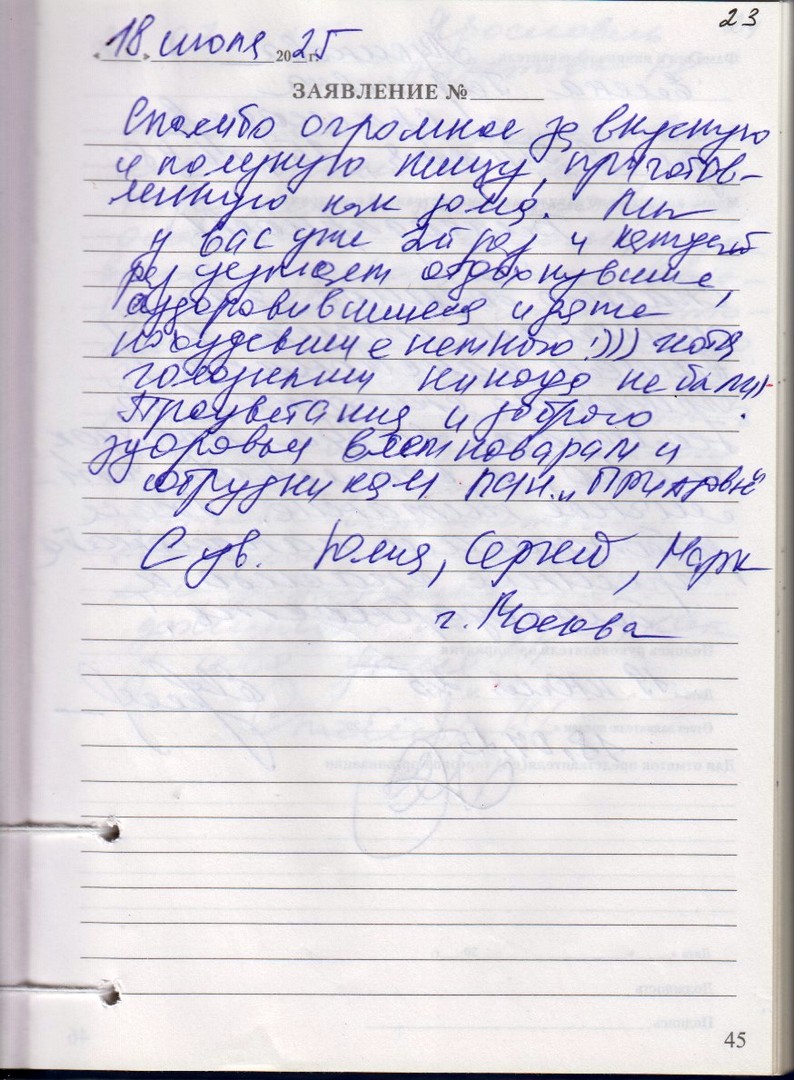 23
«18» июля 2025 г.
ЗАЯВЛЕНИЕ №
Спасибо огромное за вкусную
и полезную пищу, приготов-
ленную как дома. Мы
у вас уже 2й раз и каждый
раз уезжаем отдохнувшие,
оздоровившиеся и даже
похудевшие немного!))) хотя
голодными никогда не были.
Процветания и доброго
здоровья всем поварам и
сотрудникам пан. „
С ув. Юлия, Сергей, Марк
г. Москва
45